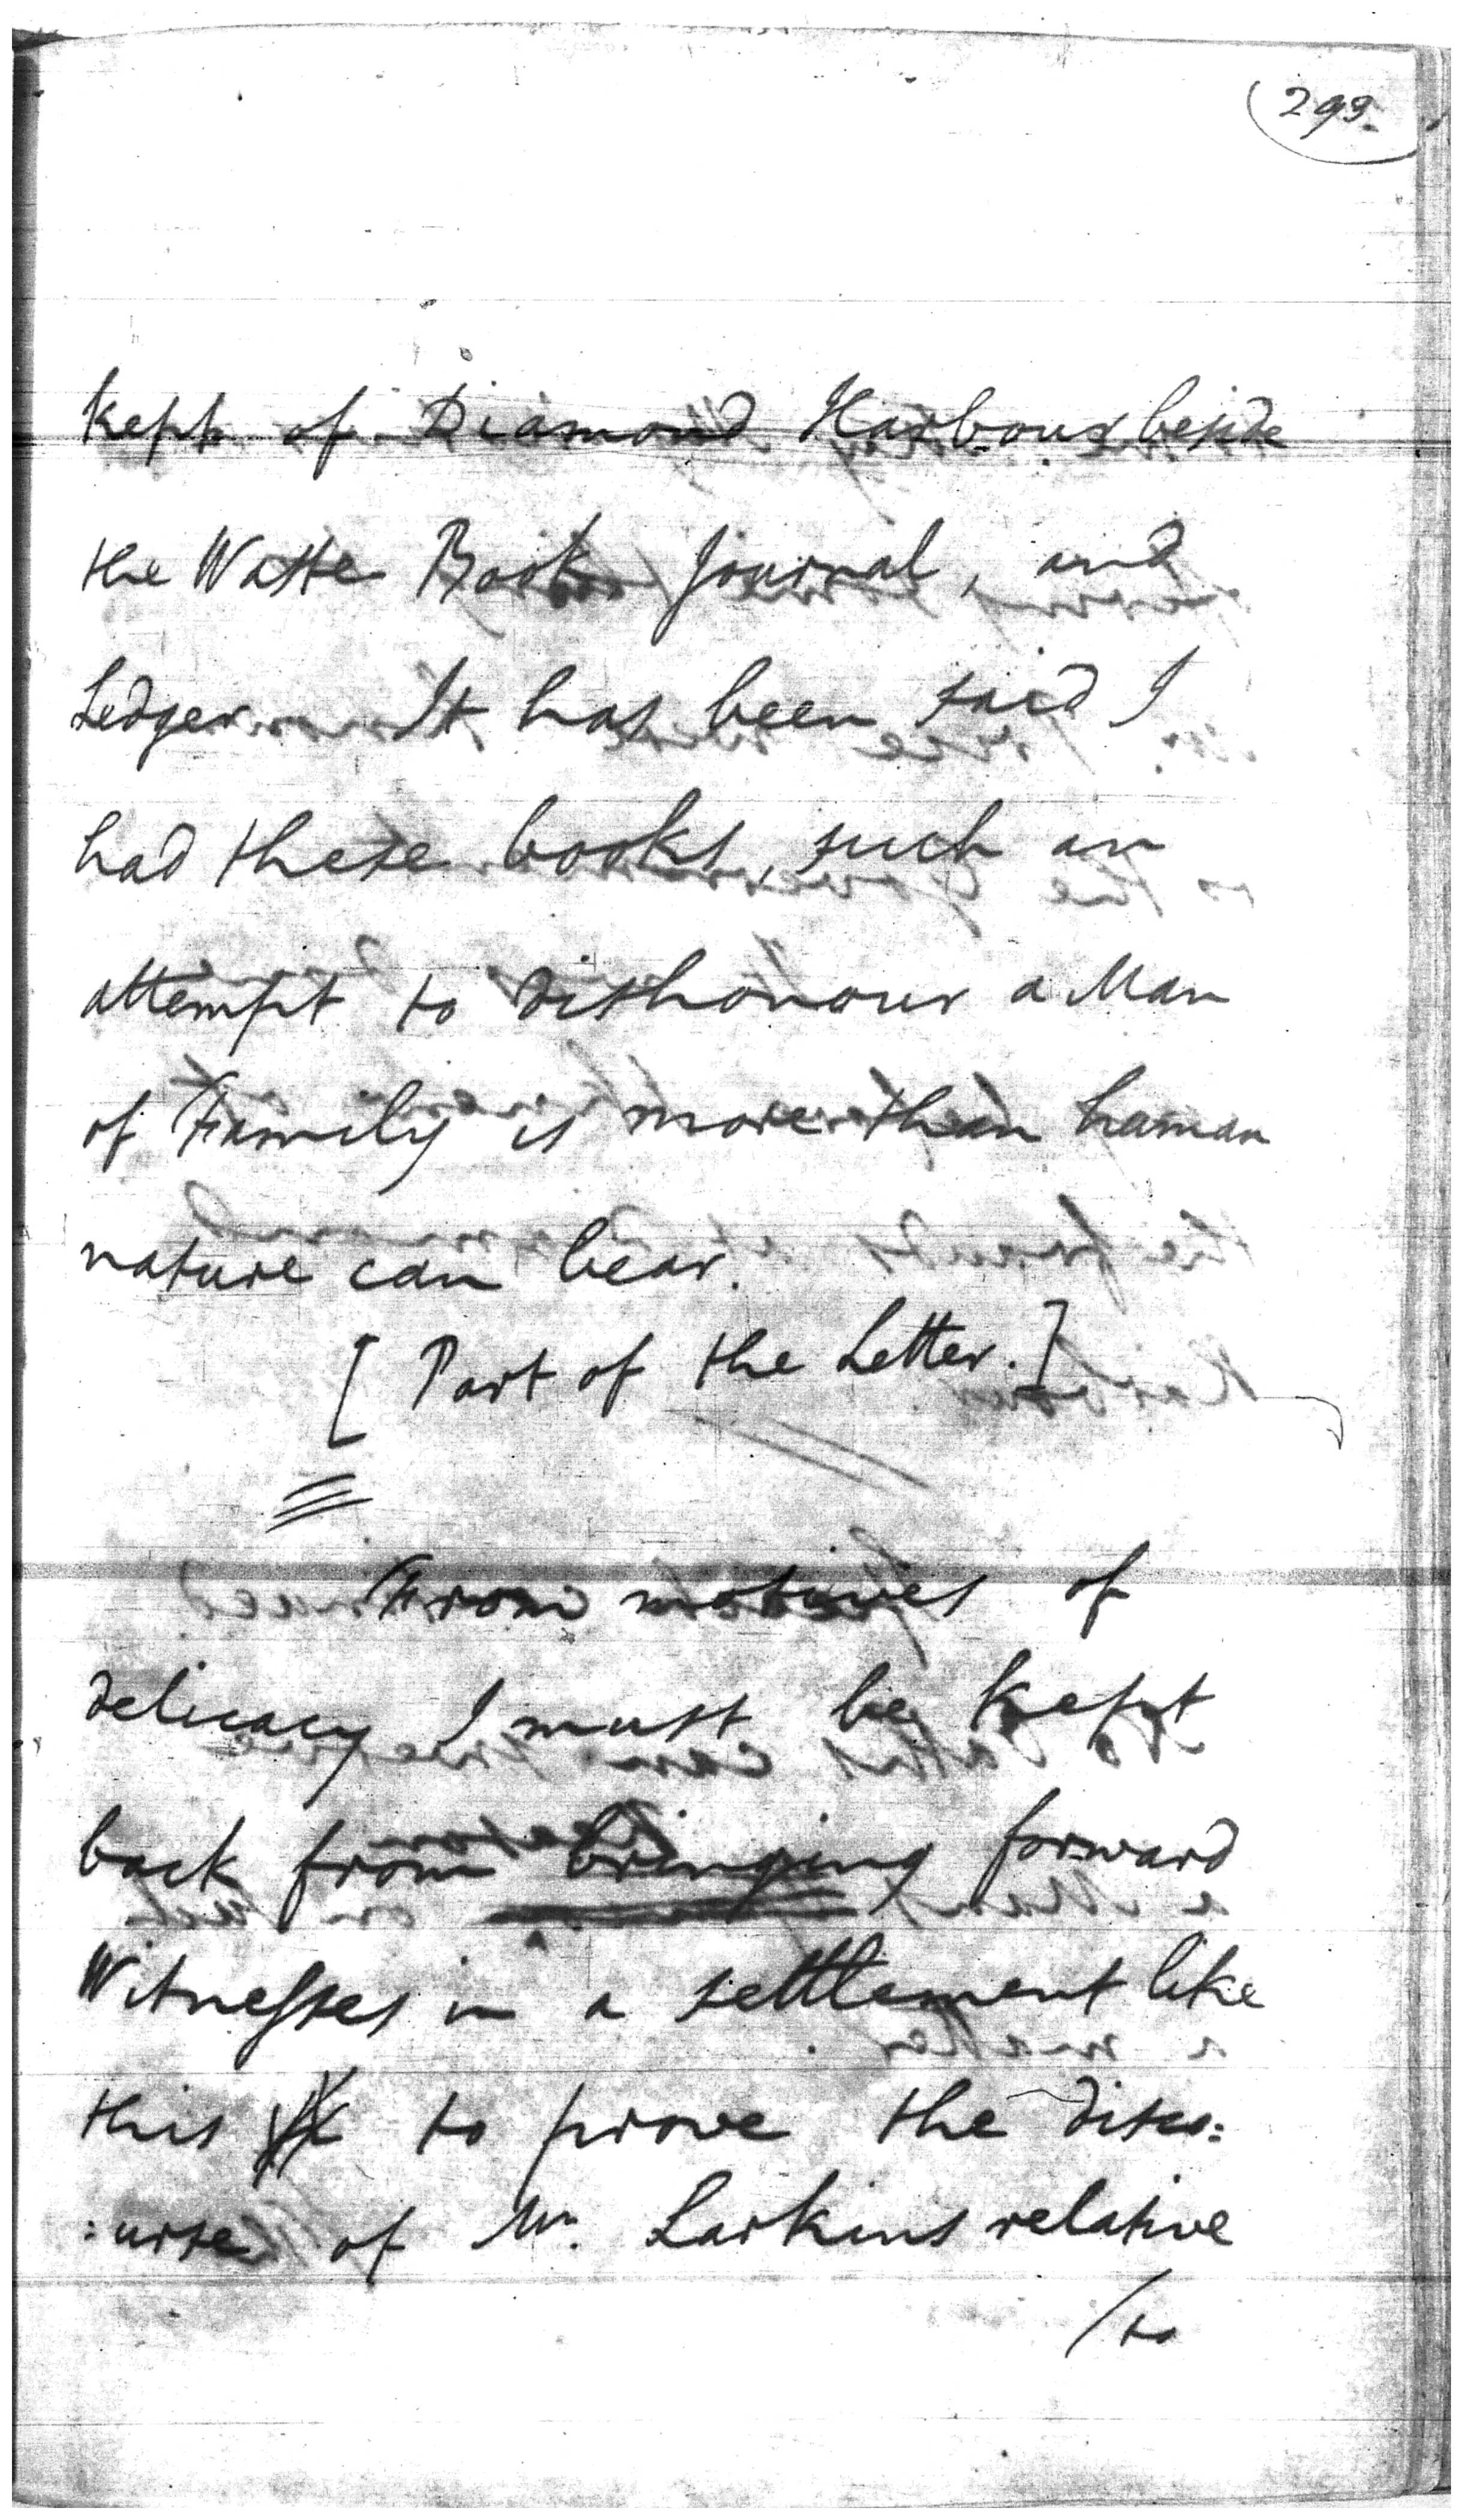 299.
kept of Diamond Harbour beside
the Waste Book Journal, and
Ledger. It has been said I
had these books, such an
attempt to dishonour a Man
of Family is more than human
nature can bear.
[Part of the Letter.]
From motives of
delicacy I must be kept
back from bringing forward
Witnesses in a settlement like
this to prove the disco:
:urse of Mr. Larkins relative
/to